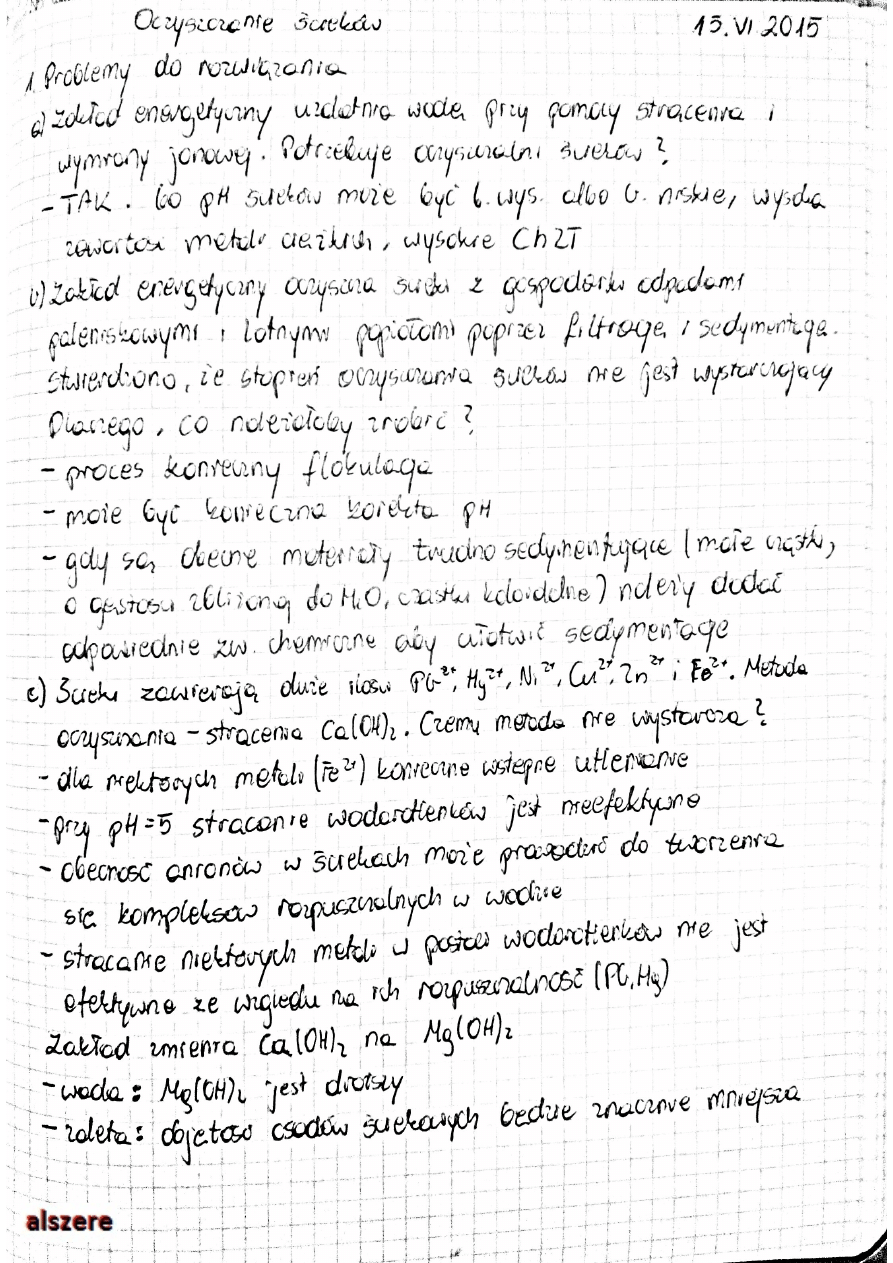 Oczyszczanie ścieków 15.VI 2015
1. Problemy do rozwiązania
a) Zakład energetyczny uzdatnia wodę przy pomocy strącenia i
wymiany jonowej. Potrzebuje oczyszczalni ścieków?
- TAK. bo pH ścieków może być b. wys. albo b. niskie, wysoka
zawartość metali ciężkich, wysokie ChZT
b) Zakład energetyczny oczyszcza ścieki z gospodarki odpadami
paleniskowymi i lotnymi popiołami poprzez filtrację i sedymentację.
Stwierdzono, że stopień oczyszczania ścieków nie jest wystarczający
Dlaczego, co należałoby zrobić?
- proces konieczny flokulacja
- może być konieczna korekta pH
- gdy są obecne materiały trudno sedymentujące (małe cząstki,
o gęstości zbliżonej do H₂O, cząstki koloidalne) należy dodać
odpowiednie zw. chemiczne aby ułatwić sedymentację
c) Ścieki zawierają duże ilości Pb²⁺, Hg²⁺, Ni²⁺, Cu²⁺, Zn²⁺ i Fe²⁺. Metoda
oczyszczania - strącenia Ca(OH)₂. Czemu metoda nie wystarcza?
- dla niektórych metali (Fe²⁺) konieczne wstępne utlenianie
- przy pH=5 strącanie wodorotlenków jest nieefektywne
- obecność anionów w ściekach może prowadzić do tworzenia
się kompleksów rozpuszczalnych w wodzie
- strącanie niektórych metali w postaci wodorotlenków nie jest
efektywne ze względu na ich rozpuszczalność (Pb, Hg)
Zakład zmienia Ca(OH)₂ na Mg(OH)₂
- wada: Mg(OH)₂ jest droższy
- zaleta: objętość osadów ściekowych będzie znacznie mniejsza
alszere